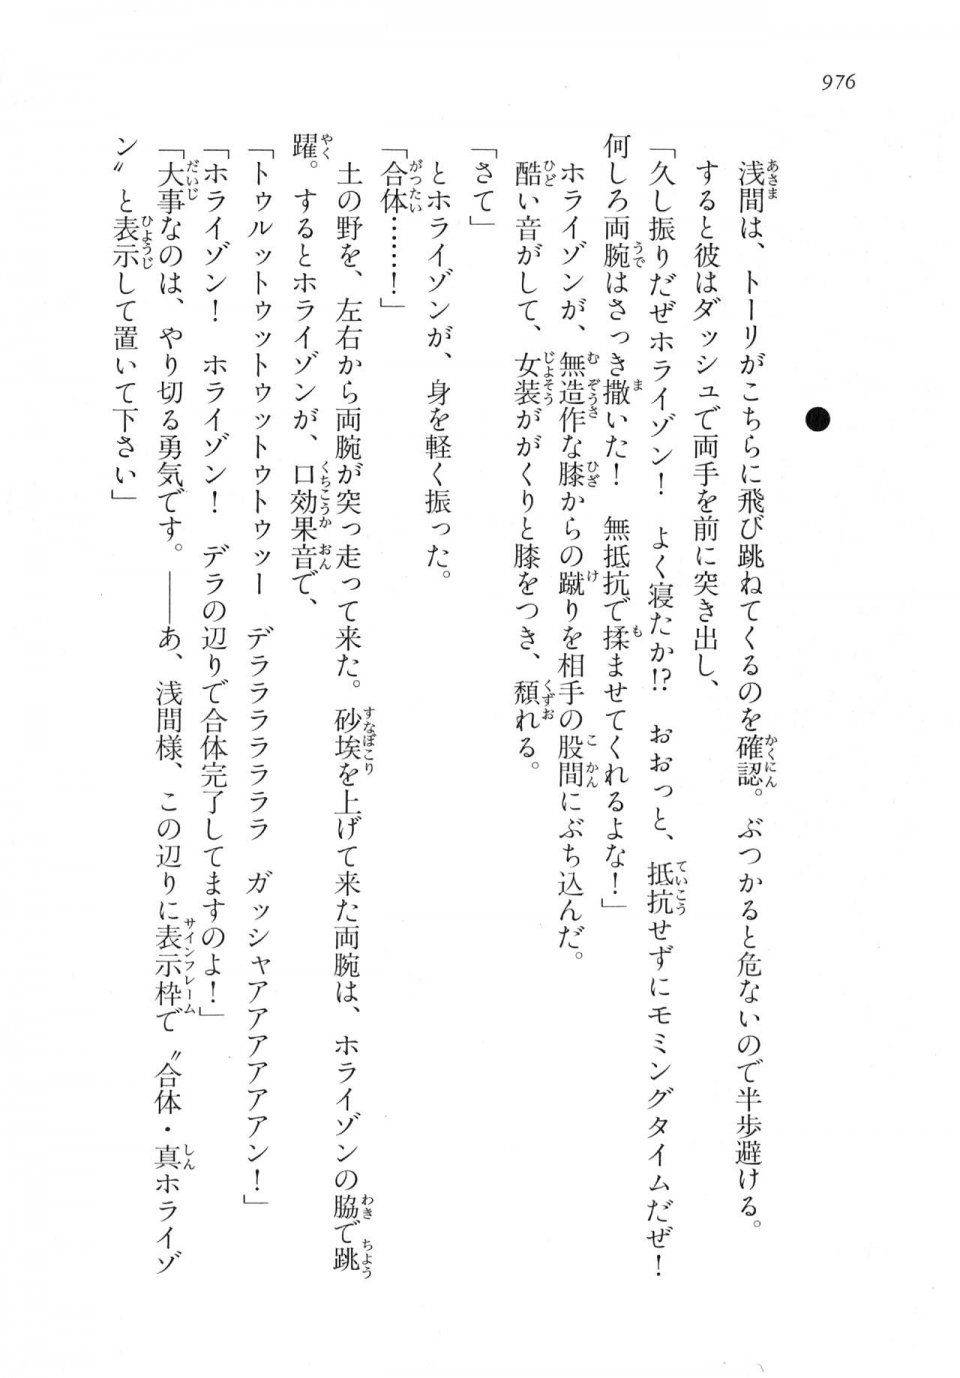 976
●
浅間は、トーリがこちらに飛び跳ねてくるのを確認。ぶつかると危ないので半歩避ける。
すると彼はダッシュで両手を前に突き出し、
「久し振りだぜホライゾン！　よく寝たか!?　おおっと、抵抗せずにモミングタイムだぜ！
何しろ両腕はさっき撒いた！　無抵抗で揉ませてくれるよな！」
ホライゾンが、無造作な膝からの蹴りを相手の股間にぶち込んだ。
酷い音がして、女装ががくりと膝をつき、頽れる。
「さて」
とホライゾンが、身を軽く振った。
「合体……！」
土の野を、左右から両腕が突っ走って来た。砂埃を上げて来た両腕は、ホライゾンの脇で跳
躍。するとホライゾンが、口効果音で、
「トゥルットゥットゥットゥトゥッー　デララララララ　ガッシャアアアアアアン！」
「ホライゾン！　ホライゾン！　デラの辺りで合体完了してますのよ！」
「大事なのは、やり切る勇気です。――あ、浅間様、この辺りに表示枠で〝合体・真ホライゾ
ン〟と表示して置いて下さい」